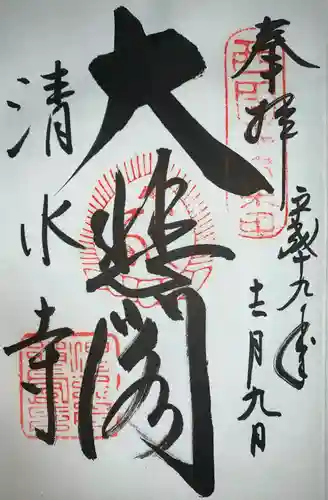 奉拝
平成十九年
十二月九日
大悲閣
清水寺